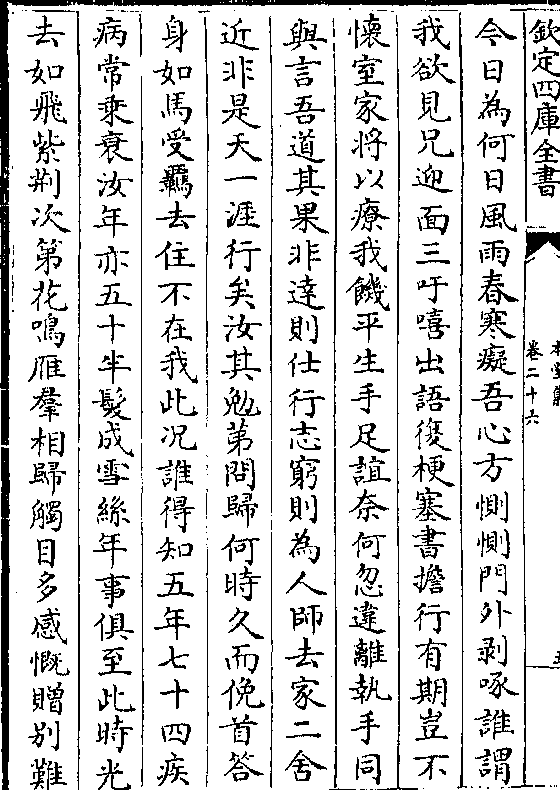 欽定四庫全書
卷二十六
今日為何日風雨春寒癡吾心方惻惻門外剥啄誰謂
我欲見兄迎面三吁嘻出語復梗塞書擔行有期豈不
懷室家將以療我饑平生手足誼奈何忽違離執手同
與言吾道其果非達則仕行志窮則為人師去家二舍
近非是天一涯行矣汝其勉弟問歸何時久而俛首答
身如馬受羈去住不在我此况誰得知五年七十四疾
病常乗衰汝年亦五十半髮成雪絲年事俱至此時光
去如飛紫荆次第花鳴雁羣相歸觸目多感慨贈别難